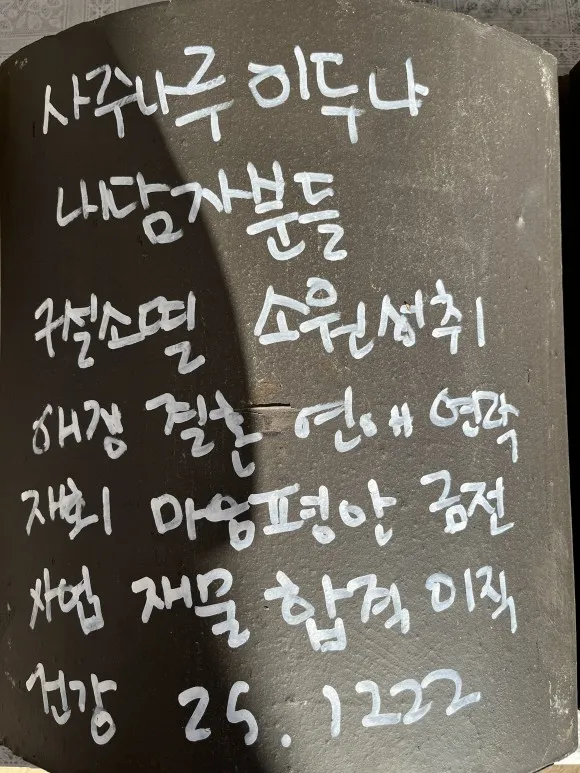 사주나루 이두나
내담자분들
귀설소멸 소원성취
애정 결혼 연애 연락
재회 마음평안 금전
사업 재물 합격 이직
건강 25. 1222